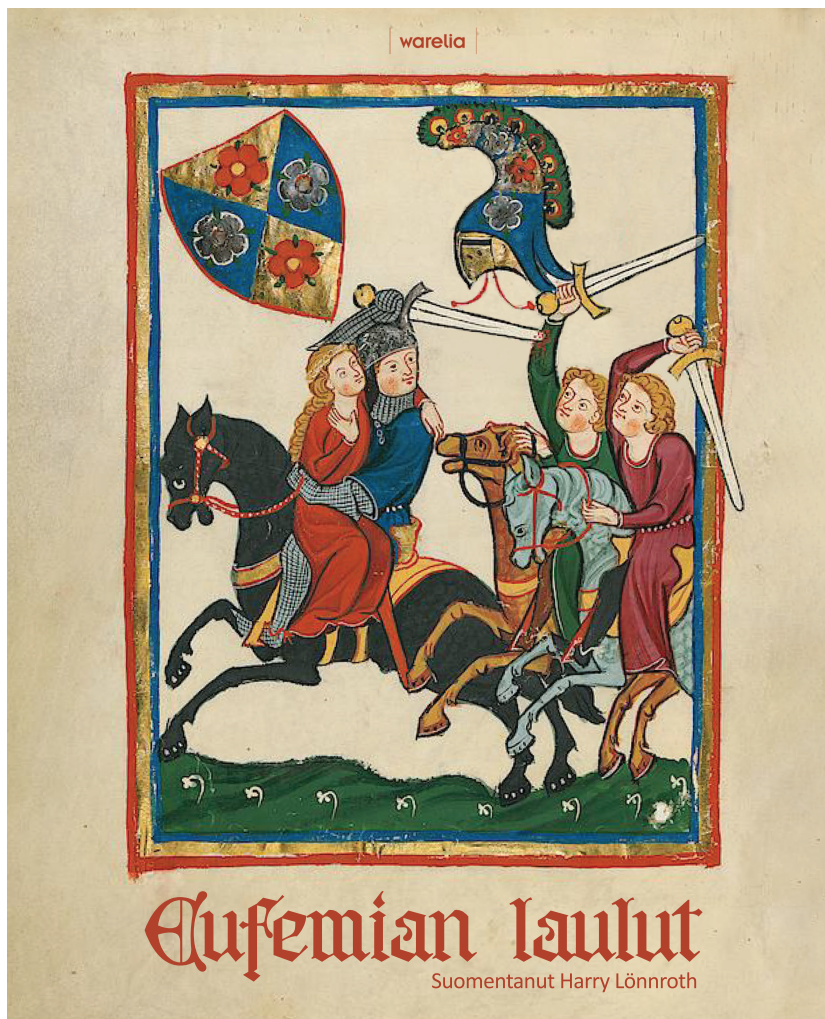 warelia
Eufemian laulut
Suomentanut Harry Lönnroth